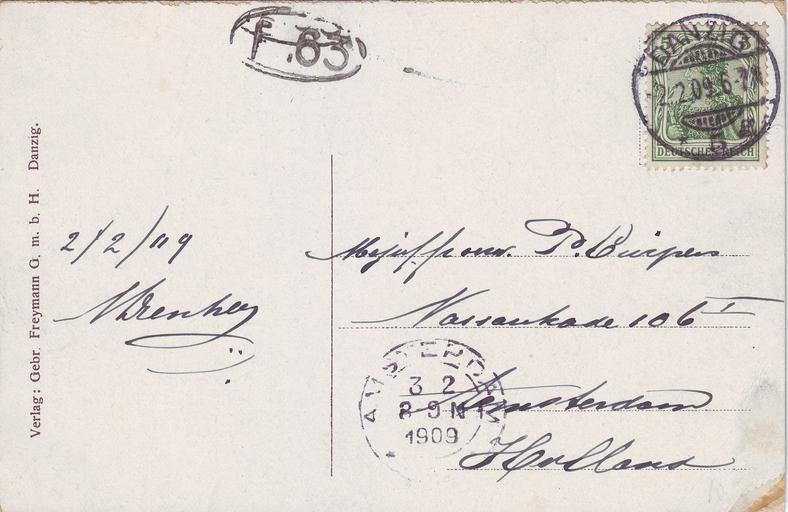 F 63
DANZIG
2.2.09.6-7N
* 5 a
DEUTSCHES REICH
Verlag: Gebr. Freymann G. m. b. H. Danzig.
2/2/09
Mejuffrouw. P. Cuipers
Nassaukade 106 I
Amsterdam
Holland
AMSTERDAM
3 2
8-9 N
1909